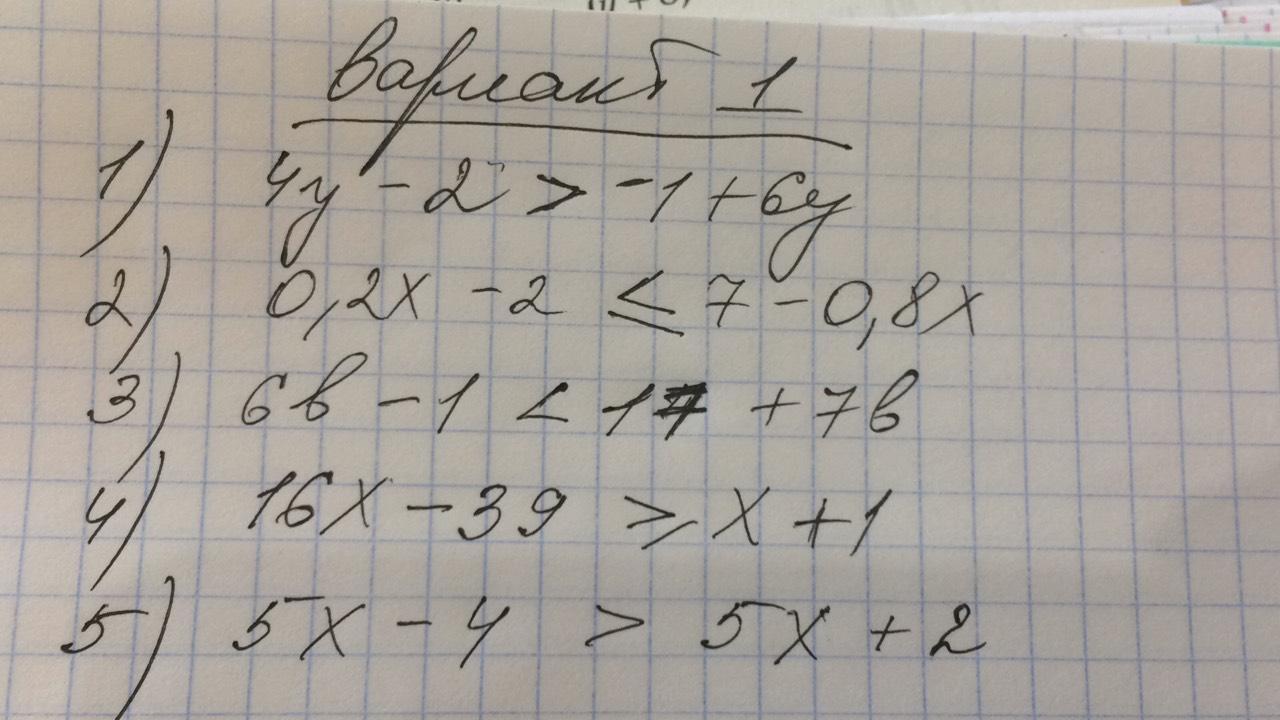 Вариант 1
1) 4y - 2 > -1 + 6y
2) 0,2x - 2 ≤ 7 - 0,8x
3) 6b - 1 < 17 + 7b
4) 16x - 39 ≥ x + 1
5) 5x - 4 > 5x + 2